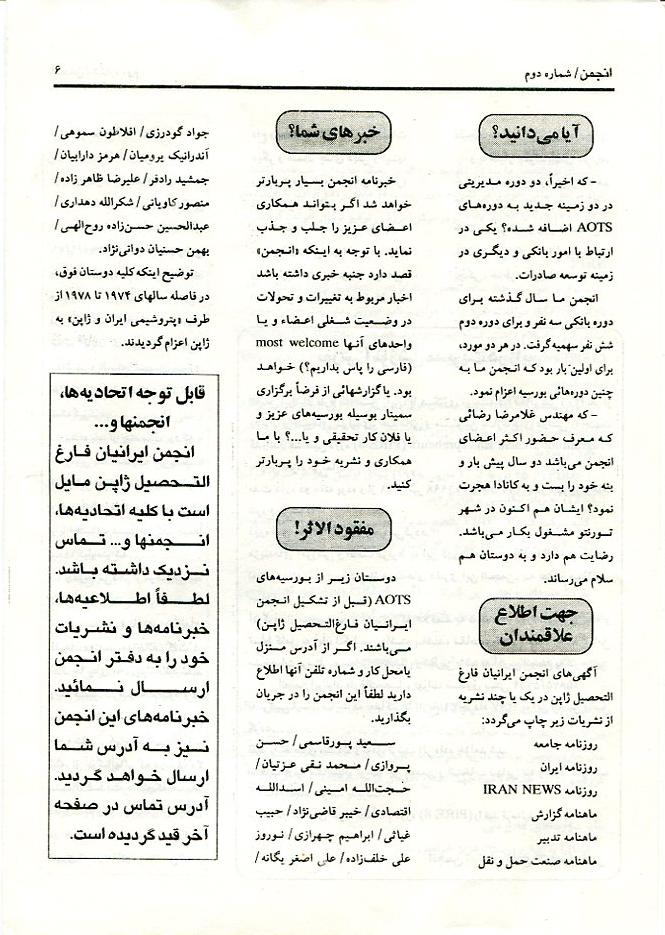 انجمن / شماره دوم
۶
آیا می‌دانید؟
– که اخیراً، دو دوره مدیریتی
در دو زمینه جدید به دوره‌های
AOTS اضافه شده؟ یکی در
ارتباط با امور بانکی و دیگری در
زمینه توسعه صادرات.
انجمن ما سال گذشته برای
دوره بانکی سه نفر و برای دوره دوم
شش نفر سهمیه گرفت. در هر دو مورد،
برای اولین بار بود که انجمن ما به
چنین دوره‌هائی بورسیه اعزام نمود.
– که مهندس غلامرضا رضائی
که معرف حضور اکثر اعضای
انجمن می‌باشد دو سال پیش بار و
بنه خود را بست و به کانادا هجرت
نمود؟ ایشان هم اکنون در شهر
تورنتو مشغول بکار می‌باشد.
رضایت هم دارد و به دوستان هم
سلام می‌رساند.
جهت اطلاع
علاقمندان
آگهی‌های انجمن ایرانیان فارغ
التحصیل ژاپن در یک یا چند نشریه
از نشریات زیر چاپ می‌گردد:
روزنامه جامعه
روزنامه ایران
روزنامه IRAN NEWS
ماهنامه گزارش
ماهنامه تدبیر
ماهنامه صنعت حمل و نقل
خبرهای شما؟
خبرنامه انجمن بسیار پربارتر
خواهد شد اگر بتواند همکاری
اعضای عزیز را جلب و جذب
نماید. با توجه به اینکه «انجمن»
قصد دارد جنبه خبری داشته باشد
اخبار مربوط به تغییرات و تحولات
در وضعیت شغلی اعضاء و یا
واحدهای آنها most welcome
(فارسی را پاس بداریم؟) خواهد
بود. یا گزارشهائی از فرضاً برگزاری
سمینار بوسیله بورسیه‌های عزیز و
یا فلان کار تحقیقی و یا...؟ با ما
همکاری و نشریه خود را پربارتر
کنید.
مفقود الاثر!
دوستان زیر از بورسیه‌های
AOTS (قبل از تشکیل انجمن
ایرانیان فارغ‌التحصیل ژاپن)
می‌باشند. اگر از آدرس منزل
یامحل کار و شماره تلفن آنها اطلاع
دارید لطفاً این انجمن را در جریان
بگذارید.
سعید پورقاسمی / حسن
پروازی / محمد نقی عزتیان /
حجت‌الله امینی / اسدالله
اقتصادی / خیبر قاضی‌نژاد / حبیب
غیاثی / ابراهیم چهرازی / نوروز
علی خلف‌زاده / علی اصغر یگانه /
جواد گودرزی / افلاطون سموهی /
آندرانیک یرومیان / هرمز دارابیان /
جمشید رادفر / علیرضا ظاهر زاده /
منصور کاویانی / شکرالله دهداری /
عبدالحسین حسن‌زاده روح‌الهی /
بهمن حسنیان دوانی‌نژاد.
توضیح اینکه کلیه دوستان فوق،
در فاصله سالهای ۱۹۷۴ تا ۱۹۷۸ از
طرف «پتروشیمی ایران و ژاپن» به
ژاپن اعزام گردیدند.
قابل توجه اتحادیه‌ها،
انجمنها و...
انجمن ایرانیان فارغ
التحصیل ژاپن مایل
است با کلیه اتحادیه‌ها،
انجمنها و... تماس
نزدیک داشته باشد.
لطفاً اطلاعیه‌ها،
خبرنامه‌ها و نشریات
خود را به دفتر انجمن
ارسال نمائید.
خبرنامه‌های این انجمن
نیز به آدرس شما
ارسال خواهد گردید.
آدرس تماس در صفحه
آخر قید گردیده است.